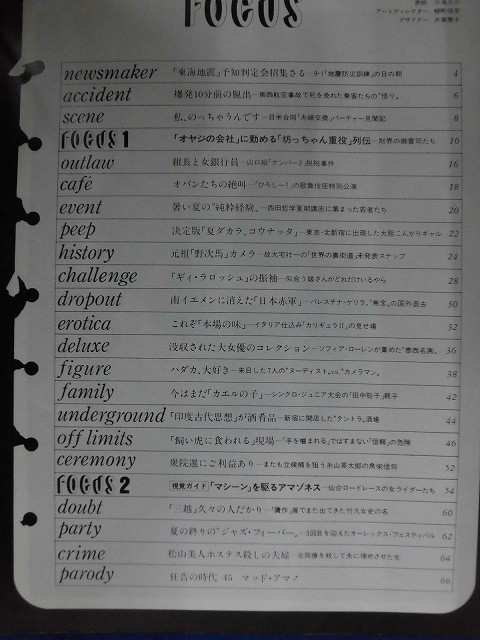 FOCUS
アートディレクター
デザイナー
newsmaker 「東海地震」予知判定会招集さる—9・1「地震防災訓練」の日の朝 4
accident 爆発10分前の脱出—南西航空事故で死を免れた乗客たちの"悟り"。 6
scene 私、のっちゃうんです—日米合同「夫婦交換」パーティー見聞記 8
FOCUS 1 「オヤジの会社」に勤める「坊っちゃん重役」列伝—財界の御曹司たち 10
outlaw 組長と女銀行員—山口組「ナンバー2」脱税事件 16
café オバンたちの絶叫—「ひろしー!」の歌舞伎座特別公演 18
event 暑い夏の"純粋経験"。—西田哲学夏期講座に集まった若者たち 20
peep 決定版「夏ダカラ、コウナッタ」—東京・北新宿に出現した大胆こんがりギャル 22
history 元祖「野次馬」カメラ—故大宅壮一の「世界の裏街道」未発表スナップ 24
challenge 「ギィ・ラロッシュ」の振袖—似合う娘さんがどれだけいるやら 28
dropout 南イエメンに消えた「日本赤軍」—パレスチナ・ゲリラ、"無念"の国外退去 30
erotica これぞ「本場の味」—イタリア仕込み「カリギュラII」の見せ場 32
deluxe 没収された大女優のコレクション—ソフィア・ローレンが集めた"泰西名画"。 36
figure ハダカ、大好き—来日した7人の"ヌーディスト"vs."カメラマン。 38
family 今はまだ「カエルの子」—シンクロ・ジュニア大会の「田中聡子」親子 42
underground 「印度古代思想」が酒肴品—新宿に開店した"タントラ"酒場 44
off limits 「飼い虎に食われる」現場—「手を噛まれる」ではすまない"信頼"の危険 46
ceremony 衆院選にご利益あり—またも立候補を狙う糸山英太郎の角栄信仰 52
FOCUS 2 視覚ガイド 「マシーン」を駆るアマゾネス—仙台ロードレースの女ライダーたち 54
doubt 「三越」久々の人だかり—「贋作」騒でまた出てきた竹久女史の名 60
party 夏の終りの"ジャズ・フィーバー"。—3回目を迎えたオーレックス・フェスティバル 62
crime 松山美人ホステス殺しの夫婦—元同僚を殺して夫に埋めさせた女 64
parody 狂告の時代 45 マッド・アマノ 66